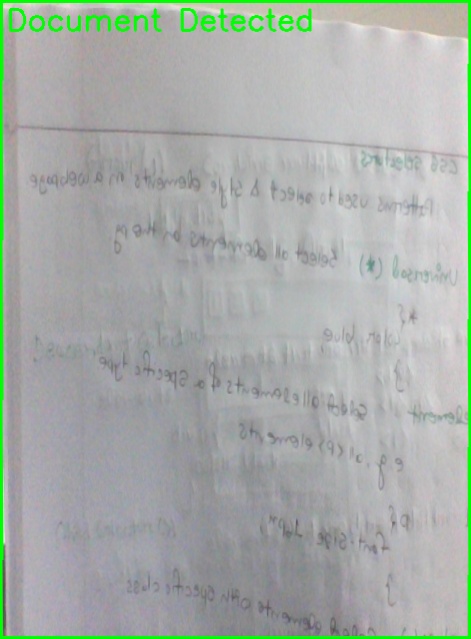 Document Detected
CSS Selectors
Patterns used to select & style elements in a webpage
Universal (*) Select all elements on the pg
*{
color: blue
}
Element Select all elements of a specific type
e.g. all <p> elements
p{
font-size:
}
Select elements with specific class